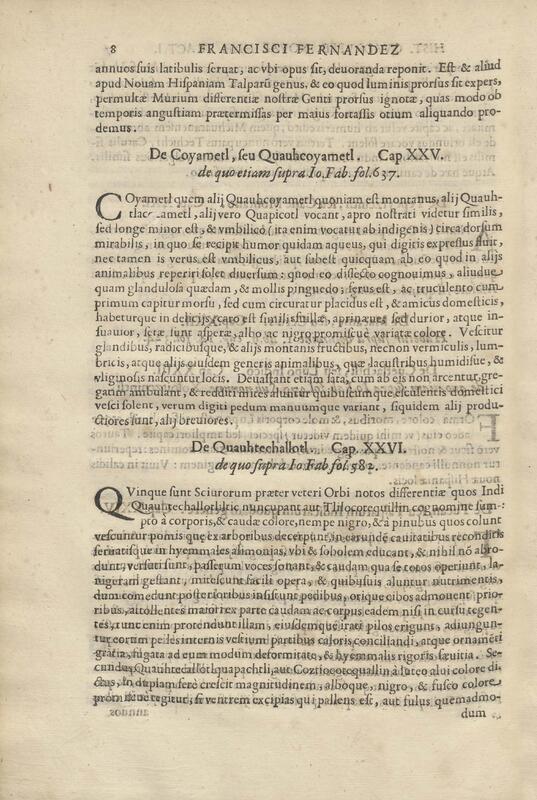 8 FRANCISCI FERNANDEZ
annuos suis latibulis seruat, ac vbi opus sit, deuoranda reponit. Est & aliud
apud Nouam Hispaniam Talparũ genus, & eo quod luminis prorsus sit expers,
permultæ Murium differentiæ nostræ Genti prorsus ignotæ, quas modo ob
temporis angustiam prætermissas per maius fortassis otium aliquando pro-
demus.
De Coyametl, seu Quauhcoyametl. Cap. XXV.
de quo etiam supra Io. Fab. fol. 637.
COyametl quem alij Quauhcoyametl quoniam est montanus, alij Quauh-
ametl, alij vero Quapicotl vocant, apro nostrati videtur similis,
sed longe minor est, & vmbilico (ita enim vocatur ab indigenis) circa dorsum
mirabilis, in quo se recipit humor quidam aqueus, qui digitis expressus fluit,
nec tamen is verus est vmbilicus, aut subest quicquam ab eo quod in alijs
animalibus reperiri solet diuersum: quod eo dissecto cognouimus, aliudue
quam glandulosa quædam, & mollis pinguedo; ferus est, ac truculento cum
primum capitur morsu, sed cum circuratur placidus est, & amicus domesticis,
habeturque in delicijs, caro est similis suillæ, aprinæue sed durior, atque in-
suauior, setæ sunt asperæ, albo ac nigro promiscue variatæ colore. Vescitur
glandibus, radicibusque, & alijs montanis fructibus, necnon vermiculis, lum-
bricis, atque alijs eiusdem generis animalibus, quæ lacustribus humidisue, &
vliginosis nascuntur locis. Deuastant etiam sata, cum ab eis non arcentur, gre-
gatim ambulant, & redditi mites aluntur quibuscumque esculentis domestici
vesci solent, verum digiti pedum manuumque variant, siquidem alij produ-
ctiores sunt, alij breuiores.
De Quauhtechallotl. Cap. XXVI.
de quo supra Io. Fab. fol. 582.
QVinque sunt Sciurorum præter veteri Orbi notos differentiæ quos Indi
Quauhtechallotltic nuncupant aut Tlilocotequillin cognomine sum-
pto à corporis, & caudæ colore, nempe nigro, & à pinubus quos colunt
vescuntur pomis que ex arboribus decerpunt, in earundẽ cauitatibus reconditis
seruatisque in hyemmales alimonias, vbi & sobolem educant, & nihil nõ abro-
dunt, versuti sunt, passerum voces sonant, & caudam qua se totos operiunt, la-
nigeram gestant, mitescunt facili opera, & quibusuis aluntur nutrimentis,
dum comedunt posterioribus insistunt pedibus, orique cibos admouent prio-
ribus, attollentes maiori ex parte caudam ac corpus eadem nisi in cursu tegen-
tes, tunc enim protendunt illam, eiusdemque irati pilos erigunt, adiungun-
tur eorum pelles internis vestium partibus caloris conciliandi, atque ornamẽti
gratia, fugata ad eum modum deformitate, & hyemmalis rigoris, sæuitia. Se-
cundus Quauhtechallotlquapachtli, aut Coztiocotequallin à luteo alui colore di-
ctus, in duplam ferè crescit magnitudinem, alboque, nigro, & fusco colore
promiscue tegitur, si ventrem excipias qui pallens est, aut fuluus quemadmo-
dum